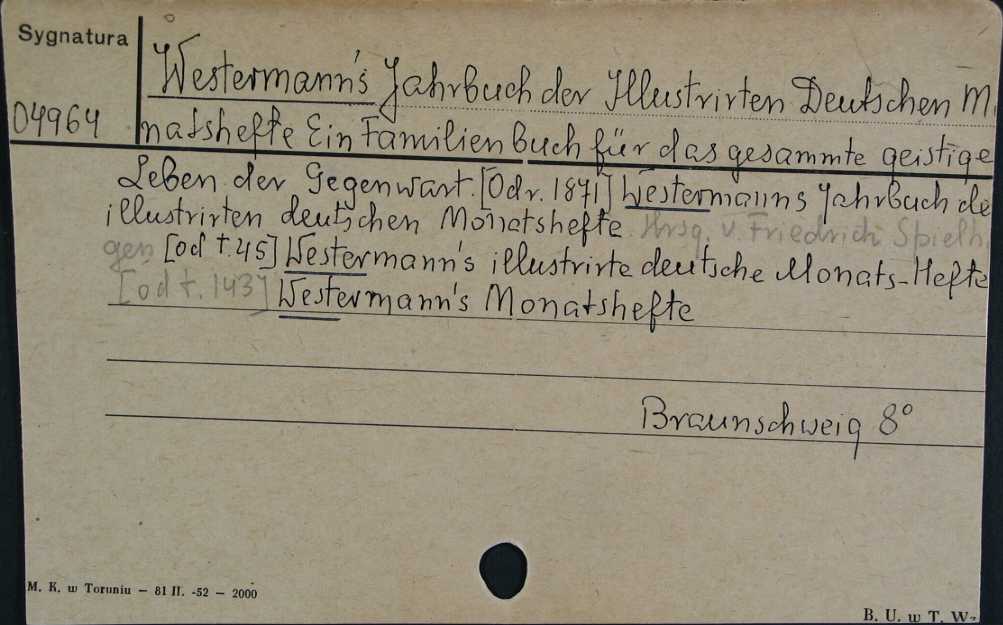 Sygnatura
04964
Westermann's Jahrbuch der Illustrirten Deutschen M
natshefte Ein Familienbuch für das gesammte geistige
Leben der Gegenwart. [Od r. 1871] Westermanns Jahrbuch de
illustrirten deutschen Monatshefte. Hrsg. v. Friedrich Spielh
gen [od t. 45] Westermann's illustrirte deutsche Monats-Hefte
[od t. 143] Westermann's Monatshefte
Braunschweig 8°
M. K. w Toruniu – 81 II. -52 – 2000
B. U. w T. W-